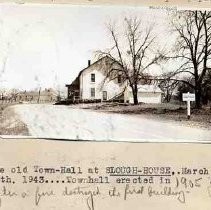 e old Town-Hall at SLOUGH-HOUSE,.March
th. 1943....Townhall erected in 1905
a fire destroyed its first building"